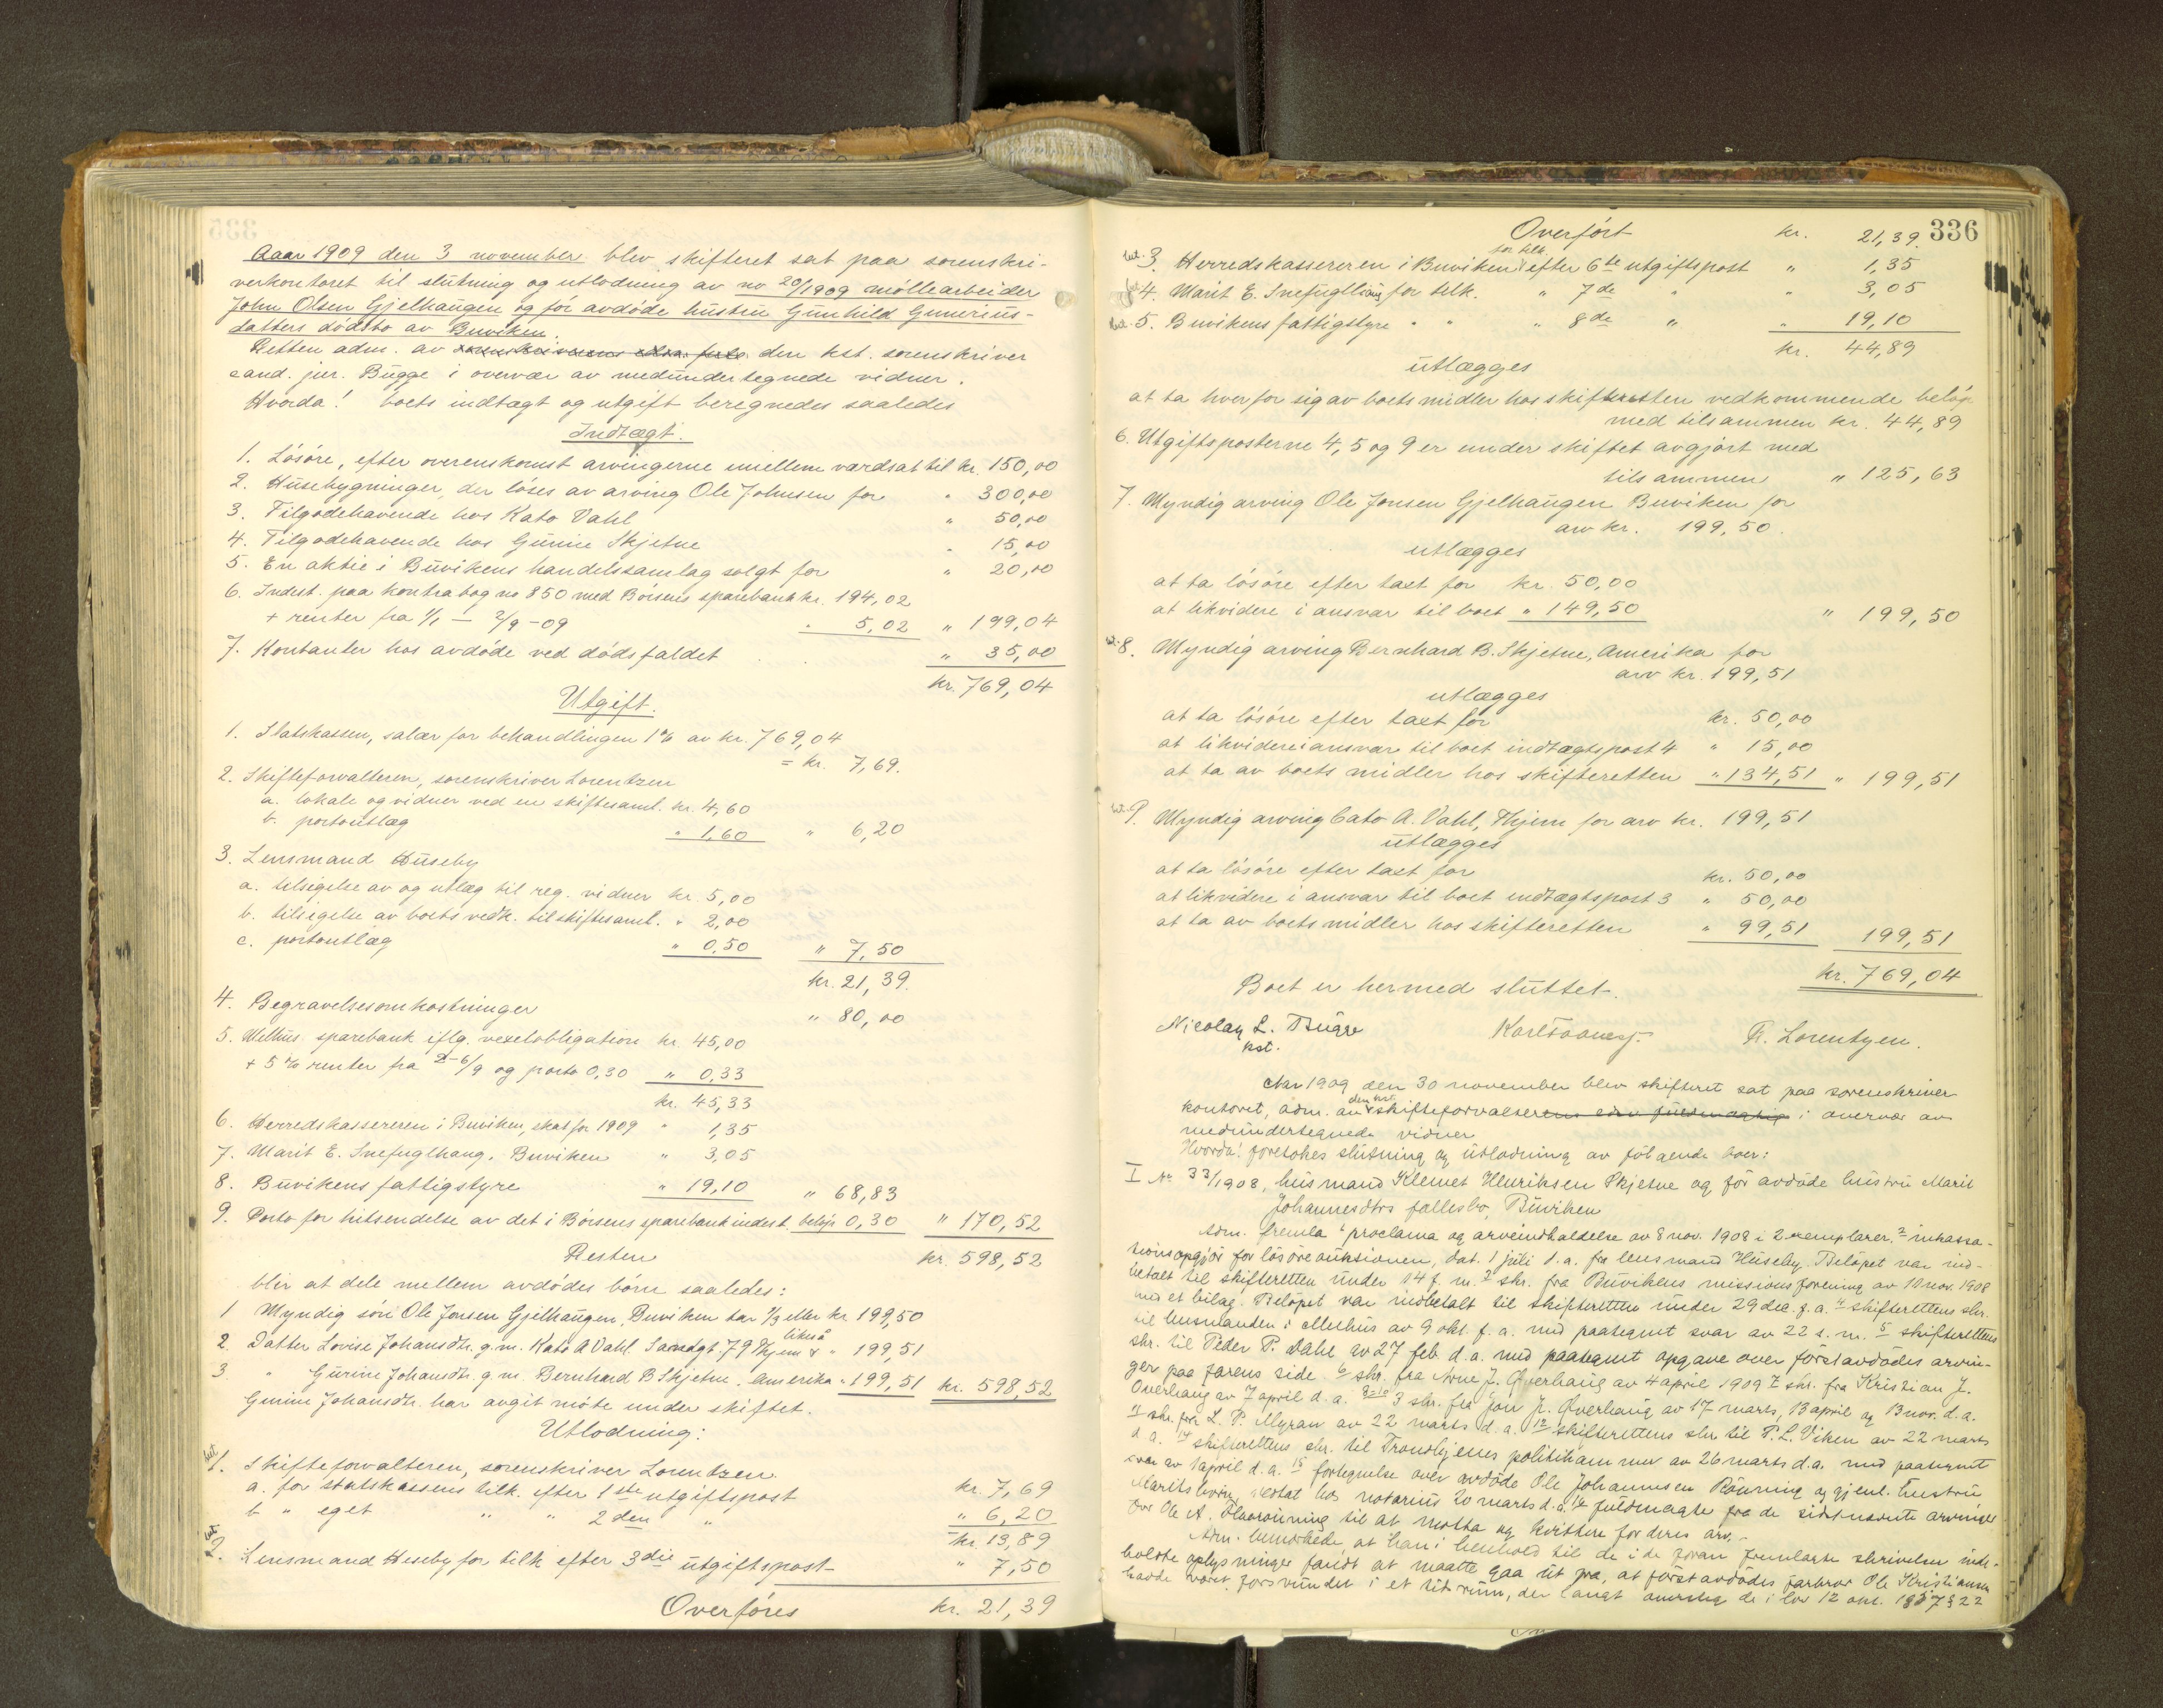 Aaar 1909 den 3 november blev skifteret sat paa sorenskri-
verkontoret til slutning og utlodning av no 20/1909 møllearbeider
John Olsen Gjelhaugen og før avdøde hustru Gunhild Gunerius-
datters dødsbo av Buviken.
Retten adm. av den kst. sorenskriver
cand. jur. Bugge i overvær av medundertegnede vidner.
Hvorda! boets indtægt og utgift beregnedes saaledes
Indtægt.
1. Løsøre, efter overenskomst arvingerne imellem værdsat til kr. 150,00
2. Husebygninger, der løses av arving Ole Johnsen for " 300,00
3. Tilgodehavende hos Kato Vahl " 50,00
4. Tilgodehavende hos Gurine Skjetne " 15,00
5. En aktie i Buvikens handelssamlag solgt for " 20,00
6. Indest. paa kontrabog no 850 med Børsens sparebank kr. 194,02
+ renter fra 1/1 – 2/9 -09 " 5,02 " 199,04
7. Kontanter hos avdøde ved dødsfaldet " 35,00
kr. 769,04
Utgift.
1. Statskassen, salær for behandlingen 1% av kr. 769,04
= kr. 7,69.
2. Skifteforvalteren, sorenskriver Lorentzen
a. lokale og vidner ved en skiftesaml. kr. 4,60
b. portoutlæg " 1,60 " 6,20
3. Lensmand Huseby
a. tilsigelse av og utlæg til reg. vidner kr. 5,00
b. tilsigelse av boets vedk. til skiftesaml. " 2,00
c. portoutlæg " 0,50 " 7,50
kr. 21,39.
4. Begravelsesomkostninger " 80,00
5. Melhus sparebank iflg. vexelobligation kr. 45,00
+ 5% renter fra 6/9 og porto 0,30 " 0,33
kr. 45,33
6. Herredskassereren i Buviken, skat for 1909 " 1,35
7. Marit E. Snefuglhaug, Buviken " 3,05
8. Buvikens fattigstyre " 19,10 " 68,83
9. Porto for hitsendelse av det i Børsens sparebank indest. beløp 0,30 " 170,52
Resten kr. 598,52
blir at dele mellem avdødes børn saaledes:
1 Myndig søn Ole Jonsen Gjelhaugen, Buviken tar 1/3 eller kr. 199,50
2. Datter Lovise Johansdtr. g.m. Kato A Vahl, 79 Thjem likeså " 199,51
3. " Gurine Johansdtr. g.m. Bernhard B Skjetne, Amerika " 199,51 kr. 598,52
Gurine Johansdtr. har avgit møte under skiftet.
Utlodning:
1. Skifteforvalteren, sorenskriver Lorentzen
a. for statskassens tilk. efter 1ste utgiftspost kr. 7,69
b " eget " " 2den " " 6,20
kr. 13,89
2. Lensmand Huseby for tilk efter 3die utgiftspost " 7,50
Overføres kr. 21,39
336
Overført kr. 21,39.
3. Herredskassereren i Buviken for tilk. efter 6te utgiftspost " 1,35
4. Marit E. Snefuglhaug for tilk. " 7de " " 3,05
5. Buvikens fattigstyre " " " 8de " " 19,10
kr. 44,89
utlægges
at ta hver for sig av boets midler hos skifteretten vedkommende beløp
med tilsammen kr. 44,89
6. Utgiftsposterne 4, 5 og 9 er under skiftet avgjort med
tilsammen " 125,63
7. Myndig arving Ole Jonsen Gjelhaugen Buviken for
arv kr. 199,50.
utlægges
at ta løsøre efter taxt for kr. 50,00
at likvidere i ansvar til boet " 149,50 " 199,50
8. Myndig arving Bernhard B. Skjetne, Amerika for
arv kr. 199,51
utlægges
at ta løsøre efter taxt for kr. 50,00
at likvidere i ansvar til boet indtægtspost 4 " 15,00
at ta av boets midler hos skifteretten " 134,51 " 199,51
9. Myndig arving Cato A. Vahl, Thjem for arv kr. 199,51
utlægges
at ta løsøre efter taxt for kr. 50,00
at likvidere i ansvar til boet indtægtspost 3 " 50,00
at ta av boets midler hos skifteretten " 99,51 199,51
kr. 769,04
Boet er hermed sluttet.
Nicolay L. Bugge
kst.
F. Lorentzen.
Aar 1909 den 30 november blev skifteret sat paa sorenskriver
kontoret, adm. av den kst. skifteforvalteren i overvær av
medundertegnede vidner
Hvorda! foretokes slutning og utlodning av følgende boer:
I No 33/1908, husmand Klemet Henriksen Skjetne og før avdøde hustru Marit
Johannesdtrs fællesbo, Buviken
Adm. fremla 1 proclama og arveindkaldelse av 8 nov. 1908 i 2 exemplarer. 2 inkassa-
tionsopgjør for løsøreauktionen, dat. 1 juli d.a. fra lensmand Huseby. Beløpet var ind-
betalt til skifteretten under 14 f.m. 3 skr. fra Buvikens missionsforening av 10 nov. 1908
med et bilag. Beløpet var indbetalt til skifteretten under 29 dec. f.a. 4 skifterettens skr.
til lensmanden i Melhus av 9 okt. f.a. med paategnet svar av 22 s.m. 5 skifterettens
skr. til Peder P. Dahl av 27 feb. d.a. med paategnet opgave over førstavdødes arvin-
ger paa farens side. 6 skr. fra Arne J. Øverhaug av 4 april 1909 7 skr. fra Kristian J.
Overhaug av 7 april d.a. 8-10 3 skr. fra Jon J. Øverhaug av 17 marts, 13 april og 13 nov. d.a.
11 skr. fra L. P. Myran av 22 marts d.a. 12 skifterettens skr. til P. L. Viken av 22 marts
d.a. 14 skifterettens skr. til Trondhjems politikammer av 26 marts d.a. med paategnet
svar av 1 april d.a. 15 fortegnelse over avdøde Ole Johannesen Rønning og gjenl. hustru
Marits børn, attestat hos notarius 20 marts d.a. 16 fuldmagter fra de sidstnævnte arvinger
for Ole A. til at motta og kvittere for deres arv.
Adm. bemerkede, at han i henhold til de i de foran fremlagte skrivelser inde-
holdte oplysninger fandt at maatte gaa ut fra, at førstavdødes farbror Ole Kristiansen
hadde været forsvundet i et tidsrum, der langt oversteg de i lov 12 okt. 1857 § 22